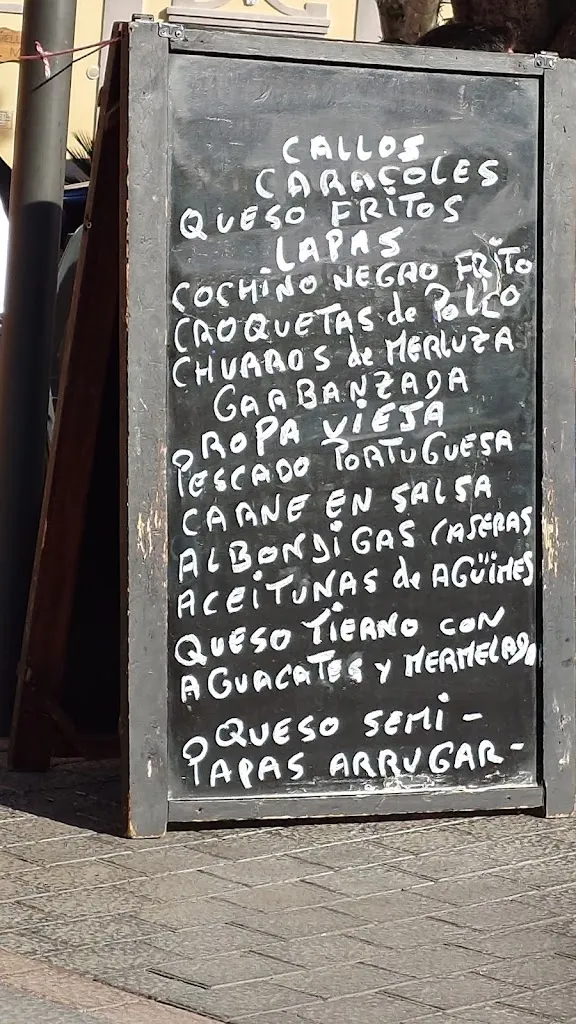 CALLOS
CARACOLES
QUESO FRITOS
LAPAS
COCHINO NEGRO FRITO
CROQUETAS de POLLO
CHURROS de MERLUZA
GARBANZADA
ROPA VIEJA
PESCADO PORTUGUESA
CARNE EN SALSA
ALBONDIGAS CASERAS
ACEITUNAS de AGÜIMES
QUESO TIERNO CON
AGUACATES Y MERMELADA
QUESO SEMI-
PAPAS ARRUGAR-